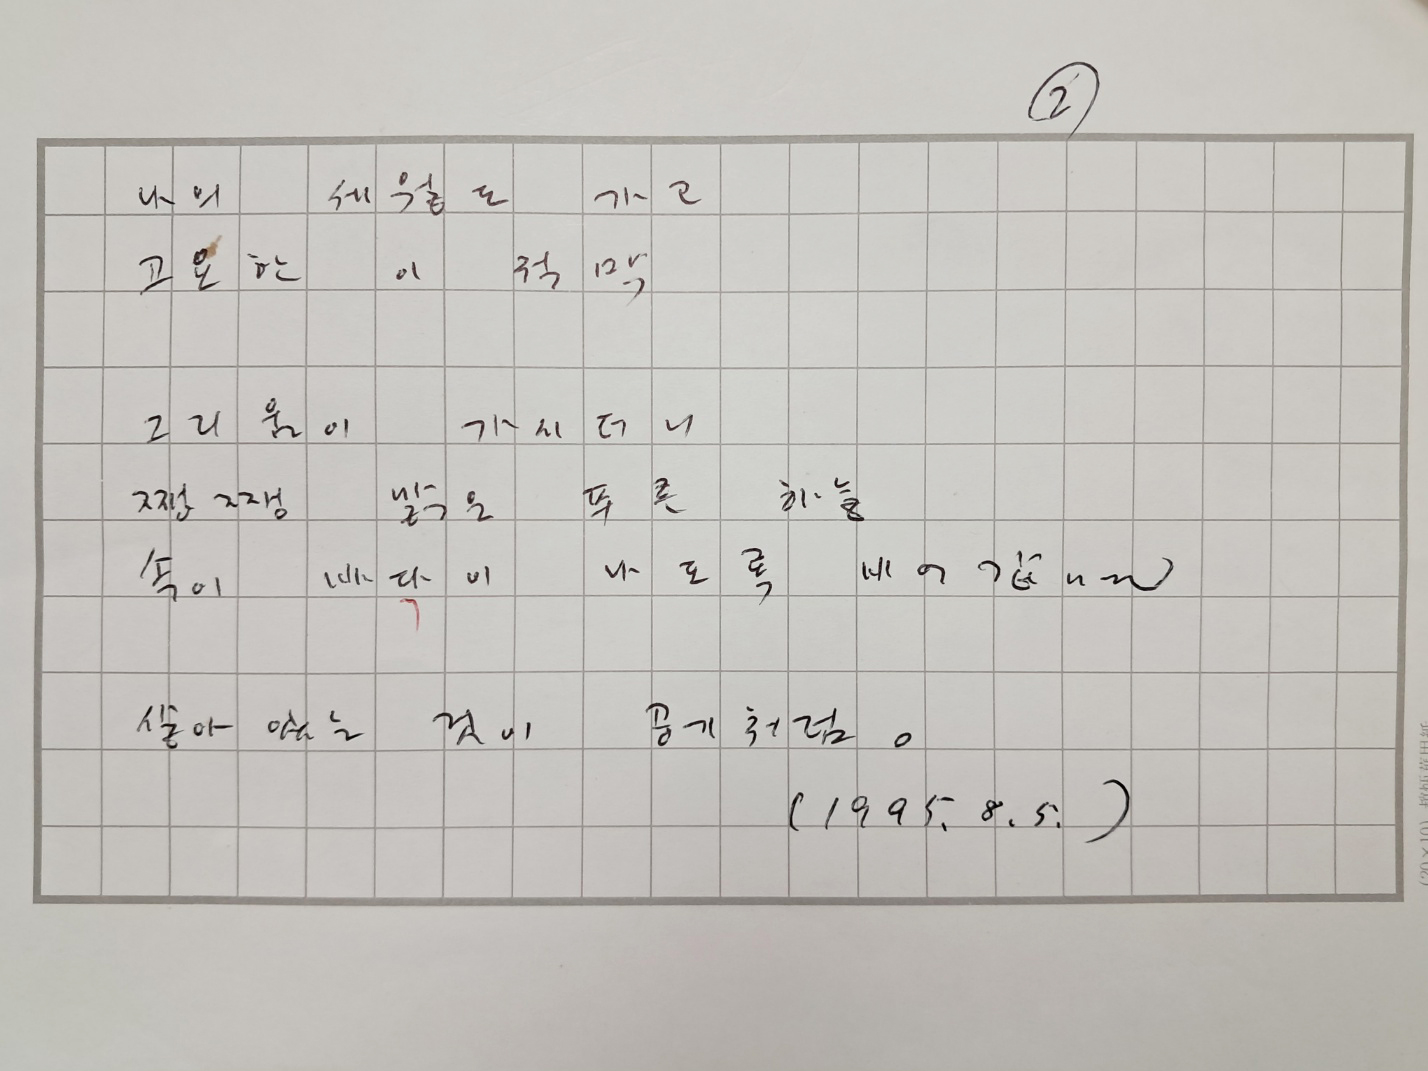 ②
나의 세월도 가고
고요한 이 적막
그리움이 가시더니
쨍쨍 맑은 푸른 하늘
속이 바닥이 나도록 비어갑니다
살아 있는 것이 공기처럼。
(1995. 8. 5.)